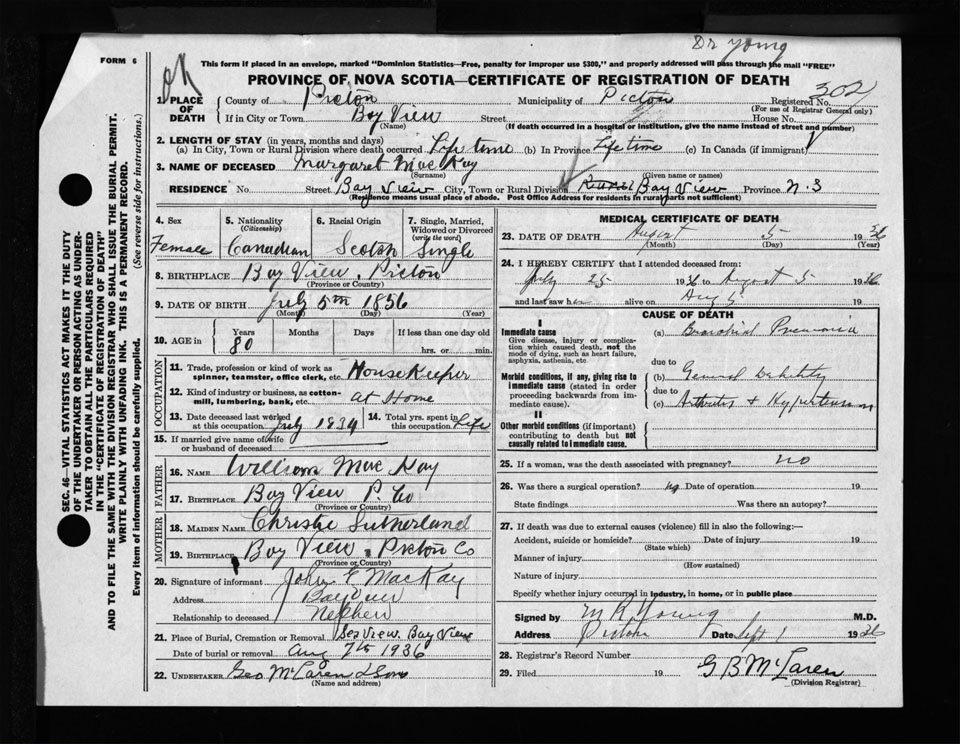 Dr Young
FORM 6
This form if placed in an envelope, marked "Dominion Statistics—Free, penalty for improper use $300," and properly addressed will pass through the mail "FREE"
PROVINCE OF NOVA SCOTIA—CERTIFICATE OF REGISTRATION OF DEATH
ok
302
1. PLACE OF DEATH County of Pictou Municipality of Pictou Registered No.
(For use of Registrar General only)
If in City or Town Bay View Street House No.
(Name) (If death occurred in a hospital or institution, give the name instead of street and number)
2. LENGTH OF STAY (in years, months and days)
(a) In City, Town or Rural Division where death occurred Life time (b) In Province Life time (c) In Canada (if immigrant)
3. NAME OF DECEASED Margaret MacKay
(Surname) (Given name or names)
RESIDENCE No. Street Bay View City, Town or Rural Division Bay View Province N.S
(Residence means usual place of abode. Post Office Address for residents in rural parts not sufficient)
4. Sex 5. Nationality (Citizenship) 6. Racial Origin 7. Single, Married, Widowed or Divorced (write the word)
Female Canadian Scotch Single
8. BIRTHPLACE Bay View, Pictou
(Province or Country)
9. DATE OF BIRTH July 5th 1856
(Month) (Day) (Year)
10. AGE in Years Months Days If less than one day old
80 hrs. or min.
OCCUPATION
11. Trade, profession or kind of work as spinner, teamster, office clerk, etc. HouseKeeper
12. Kind of industry or business, as cotton-mill, lumbering, bank, etc. at Home
13. Date deceased last worked at this occupation July 1934 14. Total yrs. spent in this occupation Life
15. If married give name of wife or husband of deceased
FATHER
16. NAME William MacKay
17. BIRTHPLACE Bay View P. Co
(Province or Country)
MOTHER
18. MAIDEN NAME Christie Sutherland
19. BIRTHPLACE Bay View, Pictou Co
(Province or Country)
20. Signature of informant John F MacKay
Address Bayview
Relationship to deceased Nephew
21. Place of Burial, Cremation or Removal Seaview. Bay View
Date of burial or removal Aug 7th 1936
22. UNDERTAKER Geo McLaren & Sons
(Name and address)
MEDICAL CERTIFICATE OF DEATH
23. DATE OF DEATH August 5 1936
(Month) (Day) (Year)
24. I HEREBY CERTIFY that I attended deceased from:
July 25 1936 to August 5 1936
and last saw her alive on Aug 5 19
CAUSE OF DEATH
I
Immediate cause
Give disease, injury or complication which caused death, not the mode of dying, such as heart failure, asphyxia, asthenia, etc
(a) Bronchial Pneumonia
due to
Morbid conditions, if any, giving rise to immediate cause (stated in order proceeding backwards from immediate cause).
(b) General Debility
due to
(c) Arthritis & Hypertension
II
Other morbid conditions (if important) contributing to death but not causally related to immediate cause.
25. If a woman, was the death associated with pregnancy? no
26. Was there a surgical operation? no Date of operation 19
State findings Was there an autopsy?
27. If death was due to external causes (violence) fill in also the following:—
Accident, suicide or homicide? Date of injury 19
(State which)
Manner of injury
(How sustained)
Nature of injury
Specify whether injury occurred in industry, in home, or in public place
Signed by M R Young M.D.
Address Pictou Date Sept 1 1936
28. Registrar's Record Number
29. Filed 19 G B McLaren
(Division Registrar)
SEC. 46—VITAL STATISTICS ACT MAKES IT THE DUTY
OF THE UNDERTAKER OR PERSON ACTING AS UNDER-
TAKER TO OBTAIN ALL THE PARTICULARS REQUIRED
IN THE "CERTIFICATE OF REGISTRATION OF DEATH"
AND TO FILE THE SAME WITH THE DIVISION REGISTRAR WHO SHALL ISSUE THE BURIAL PERMIT.
WRITE PLAINLY WITH UNFADING INK. THIS IS A PERMANENT RECORD.
Every item of information should be carefully supplied. (See reverse side for instructions.)